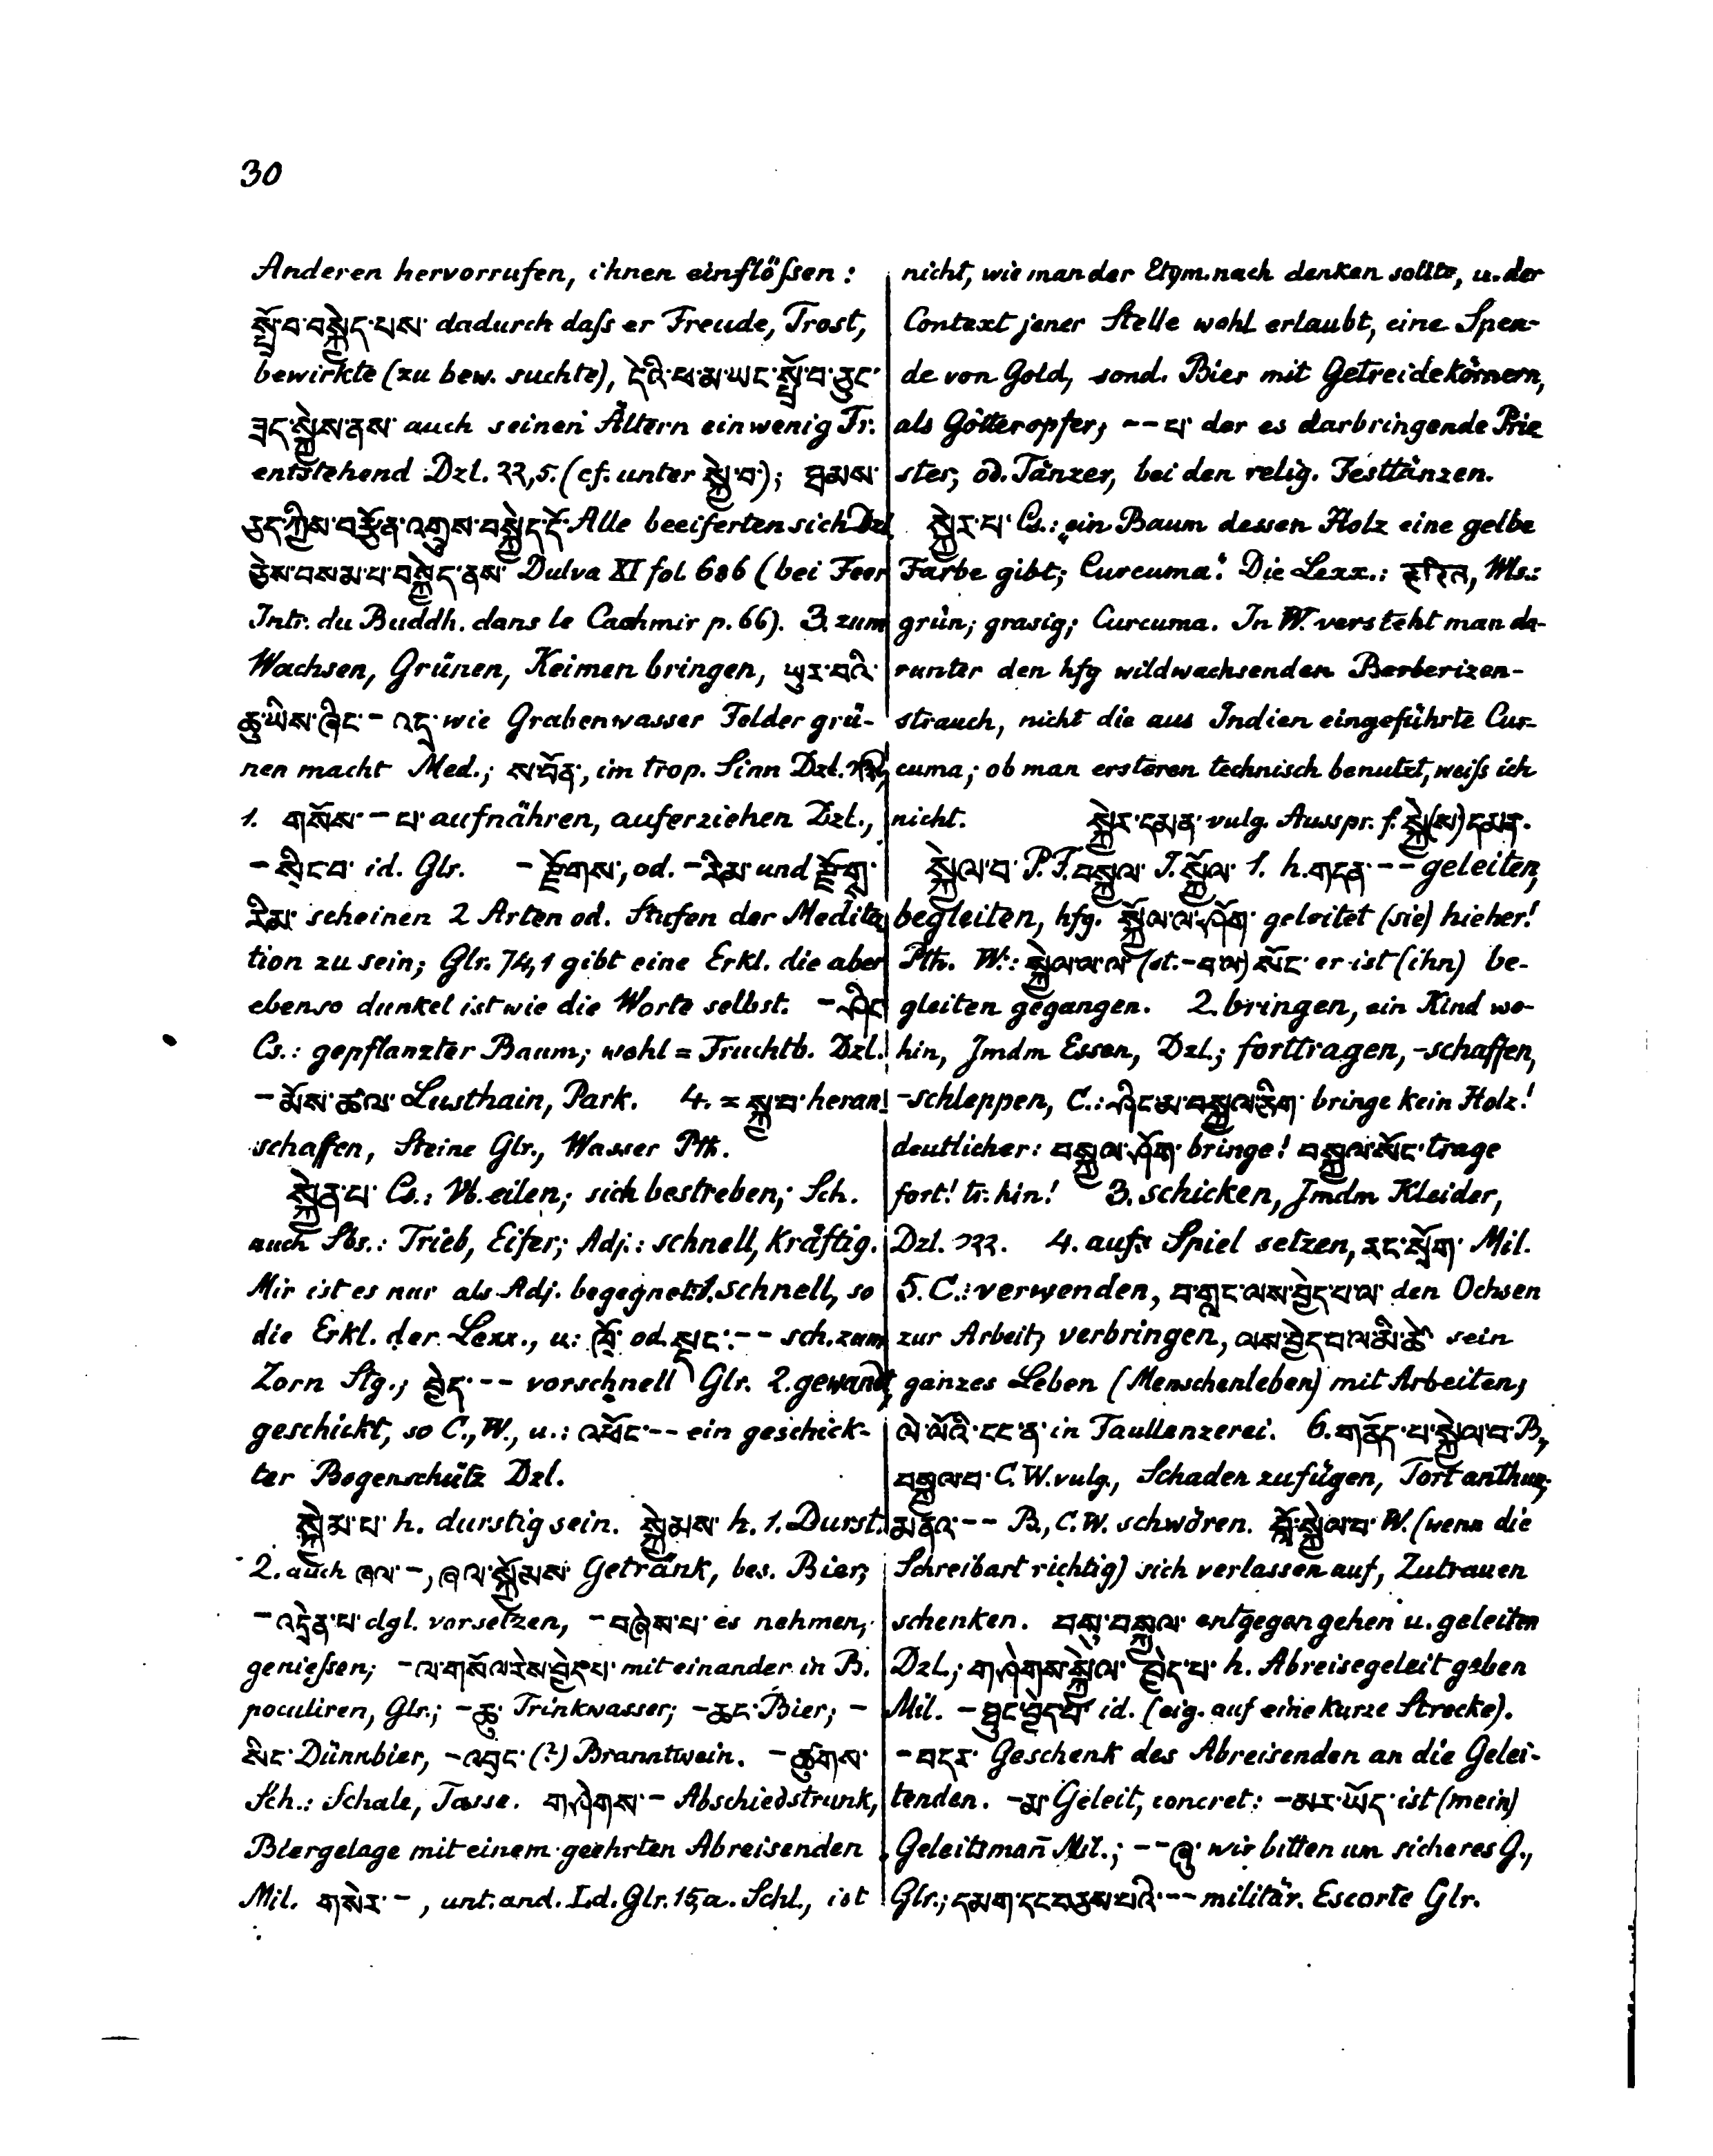 30
Anderen hervorrufen, ihnen einflößen:
སྤྲོ་བ་བསྐྱེད་པས་ dadurch daſs er Freude, Trost,
bewirkte (zu bew. suchte), དེའི་ཕ་མ་ཡང་སྤྲོ་བ་ཅུང་
ཟད་སྐྱེས་ནས་ auch seinen Ältern ein wenig Fr.
entstehend Dzl. ༢༢,5. (cf. unter སྐྱེ་བ་); ཐམས་
ཅད་ཀྱིས་བརྩོན་འགྲུས་བསྐྱེད་དོ་ Alle beeiferten sich Dzl
ཅེས་བསམ་པ་བསྐྱེད་ནས་ Dulva XI fol 686 (bei Feer
Intr. du Buddh. dans le Cachmir p. 66). 3. zum
Wachsen, Grünen, Keimen bringen, ཡུར་བའི་
ཆུ་ཡིས་ཞིང་ – འདྲ་ wie Grabenwasser Felder grü-
nen macht Med.; ས་བོན་, im trop. Sinn Dzl.
1. གསོས་ – པ་ aufnähren, auferziehen Dzl.,
– སྲིང་བ་ id. Glr. – རྫོགས་, od. – རིམ་ und རྫོགས་
རིམ་ scheinen 2 Arten od. Stufen der Medita
tion zu sein; Glr. 74,1 gibt eine Erkl. die aber
ebenso dunkel ist wie die Worte selbst. – ཤིང་
Cs.: gepflanzter Baum; wohl = Fruchtb. Dzl.
– མོས་ཚལ་ Lusthain, Park. 4. = སྐྱ་བ་ heran
schaffen, Steine Glr., Wasser Pth.
སྐྱེན་པ་ Cs.: Vb. eilen; sich bestreben; Sch.
auch Sbs.: Trieb, Eifer; Adj.: schnell, kräftig.
Mir ist es nur als Adj. begegnet: 1. schnell, so
die Erkl. der Lexx., u: ཁྲོ་ od. སྡང་ – – sch. zum
Zorn Stg.; བྱེད་ – – vorschnell Glr. 2. gewandt,
geschickt, so C., W., u.: འཕོང་ – – ein geschick-
ter Bogenschütz Dzl.
སྐྱེམ་པ་ h. durstig sein. སྐྱེམས་ h. 1. Durst.
2. auch ཞལ་ –, ཞལ་སྐྱོམས་ Getränk, bes. Bier;
– འདྲེན་པ་ dgl. vorsetzen, – བཞེས་པ་ es nehmen,
genieſsen; – ལ་གསོལ་རེས་བྱེད་པ་ mit einander in B.
poculiren, Glr.; – ཆུ་ Trinkwasser; – ཆང་ Bier; –
སིང་ Dünnbier, – འབྲང་ (?) Branntwein. – ཚུགས་
Sch.: Schale, Tasse. གཤེགས་ – Abschiedstrunk,
Biergelage mit einem geehrten Abreisenden
Mil. གསེར་ –, unt. and. Ld. Glr. 15,a. Schl., ist
nicht, wie man der Etym. nach denken sollte, u. der
Context jener Stelle wohl erlaubt, eine Spen-
de von Gold, sond. Bier mit Getreidekörnern,
als Götteropfer; – – པ་ der es darbringende Prie
ster; od. Tänzer, bei den relig. Festtänzen.
སྐྱེར་པ་ Cs.: „ein Baum dessen Holz eine gelbe
Farbe gibt; Curcuma". Die Lexx.: हरित, Ws.:
grün; grasig; Curcuma. In W. versteht man da-
runter den hfg wildwachsenden Berberizen-
strauch, nicht die aus Indien eingeführte Cur-
cuma; ob man ersteren technisch benutzt, weiſs ich
nicht. སྐྱེར་དམན་ vulg. Ausspr. f. སྐྱེ(ས)དམན་.
སྐྱེལ་བ་ P. F. བསྐྱལ་ I. སྐྱོལ་ 1. h. གདན་ – – geleiten,
begleiten, hfg. སྐྱོལ་ལ་ཤོག་ geleitet (sie) hieher!
Pth. W.: སྐྱེལ་ལ་ལ་ (st. – བ་ལ་) སོང་ er ist (ihn) be-
gleiten gegangen. 2. bringen, ein Kind wo-
hin, Jmdm Essen, Dzl.; forttragen, -schaffen,
-schleppen, C.: ཤིང་མ་བསྐྱལ་ཅིག་ bringe kein Holz!
deutlicher: བསྐྱལ་ཤོག་ bringe! བསྐྱལ་སོང་ trage
fort! tr. hin! 3. schicken, Jmdm Kleider,
Dzl. ༡༢༢. 4. aufs Spiel setzen, རང་སྲོག་ Mil.
5. C.: verwenden, བ་གླང་ལས་བྱེད་པ་ལ་ den Ochsen
zur Arbeit; verbringen, ལས་བྱེད་པ་ལ་མི་ཚེ་ sein
ganzes Leben (Menschenleben) mit Arbeiten;
ལེ་ལོའི་ངང་ན་ in Faullenzerei. 6. གནོད་པ་སྐྱེལ་བ་ B.,
བསྐྱལ་བ་ C. W. vulg., Schaden zufügen, Tort anthun;
མནའ་ – – B., C. W. schwören. བློ་སྐྱེལ་བ་ W. (wenn die
Schreibart richtig) sich verlassen auf, Zutrauen
schenken. བསུ་བསྐྱལ་ entgegen gehen u. geleiten
Dzl.; གཤེགས་སྐྱེལ་ བྱེད་པ་ h. Abreisegeleit geben
Mil. – ཐུང་བྱེད་པ་ id. (eig. auf eine kurze Strecke).
– བདར་ Geschenk des Abreisenden an die Gelei-
tenden. – མ་ Geleit, concret: – མར་ཡོད་ ist (mein)
Geleitsmañ Mil.; – – ཞུ་ wir bitten um sicheres G.,
Glr.; དམག་དང་བཅས་པའི་ – – militär. Escorte Glr.